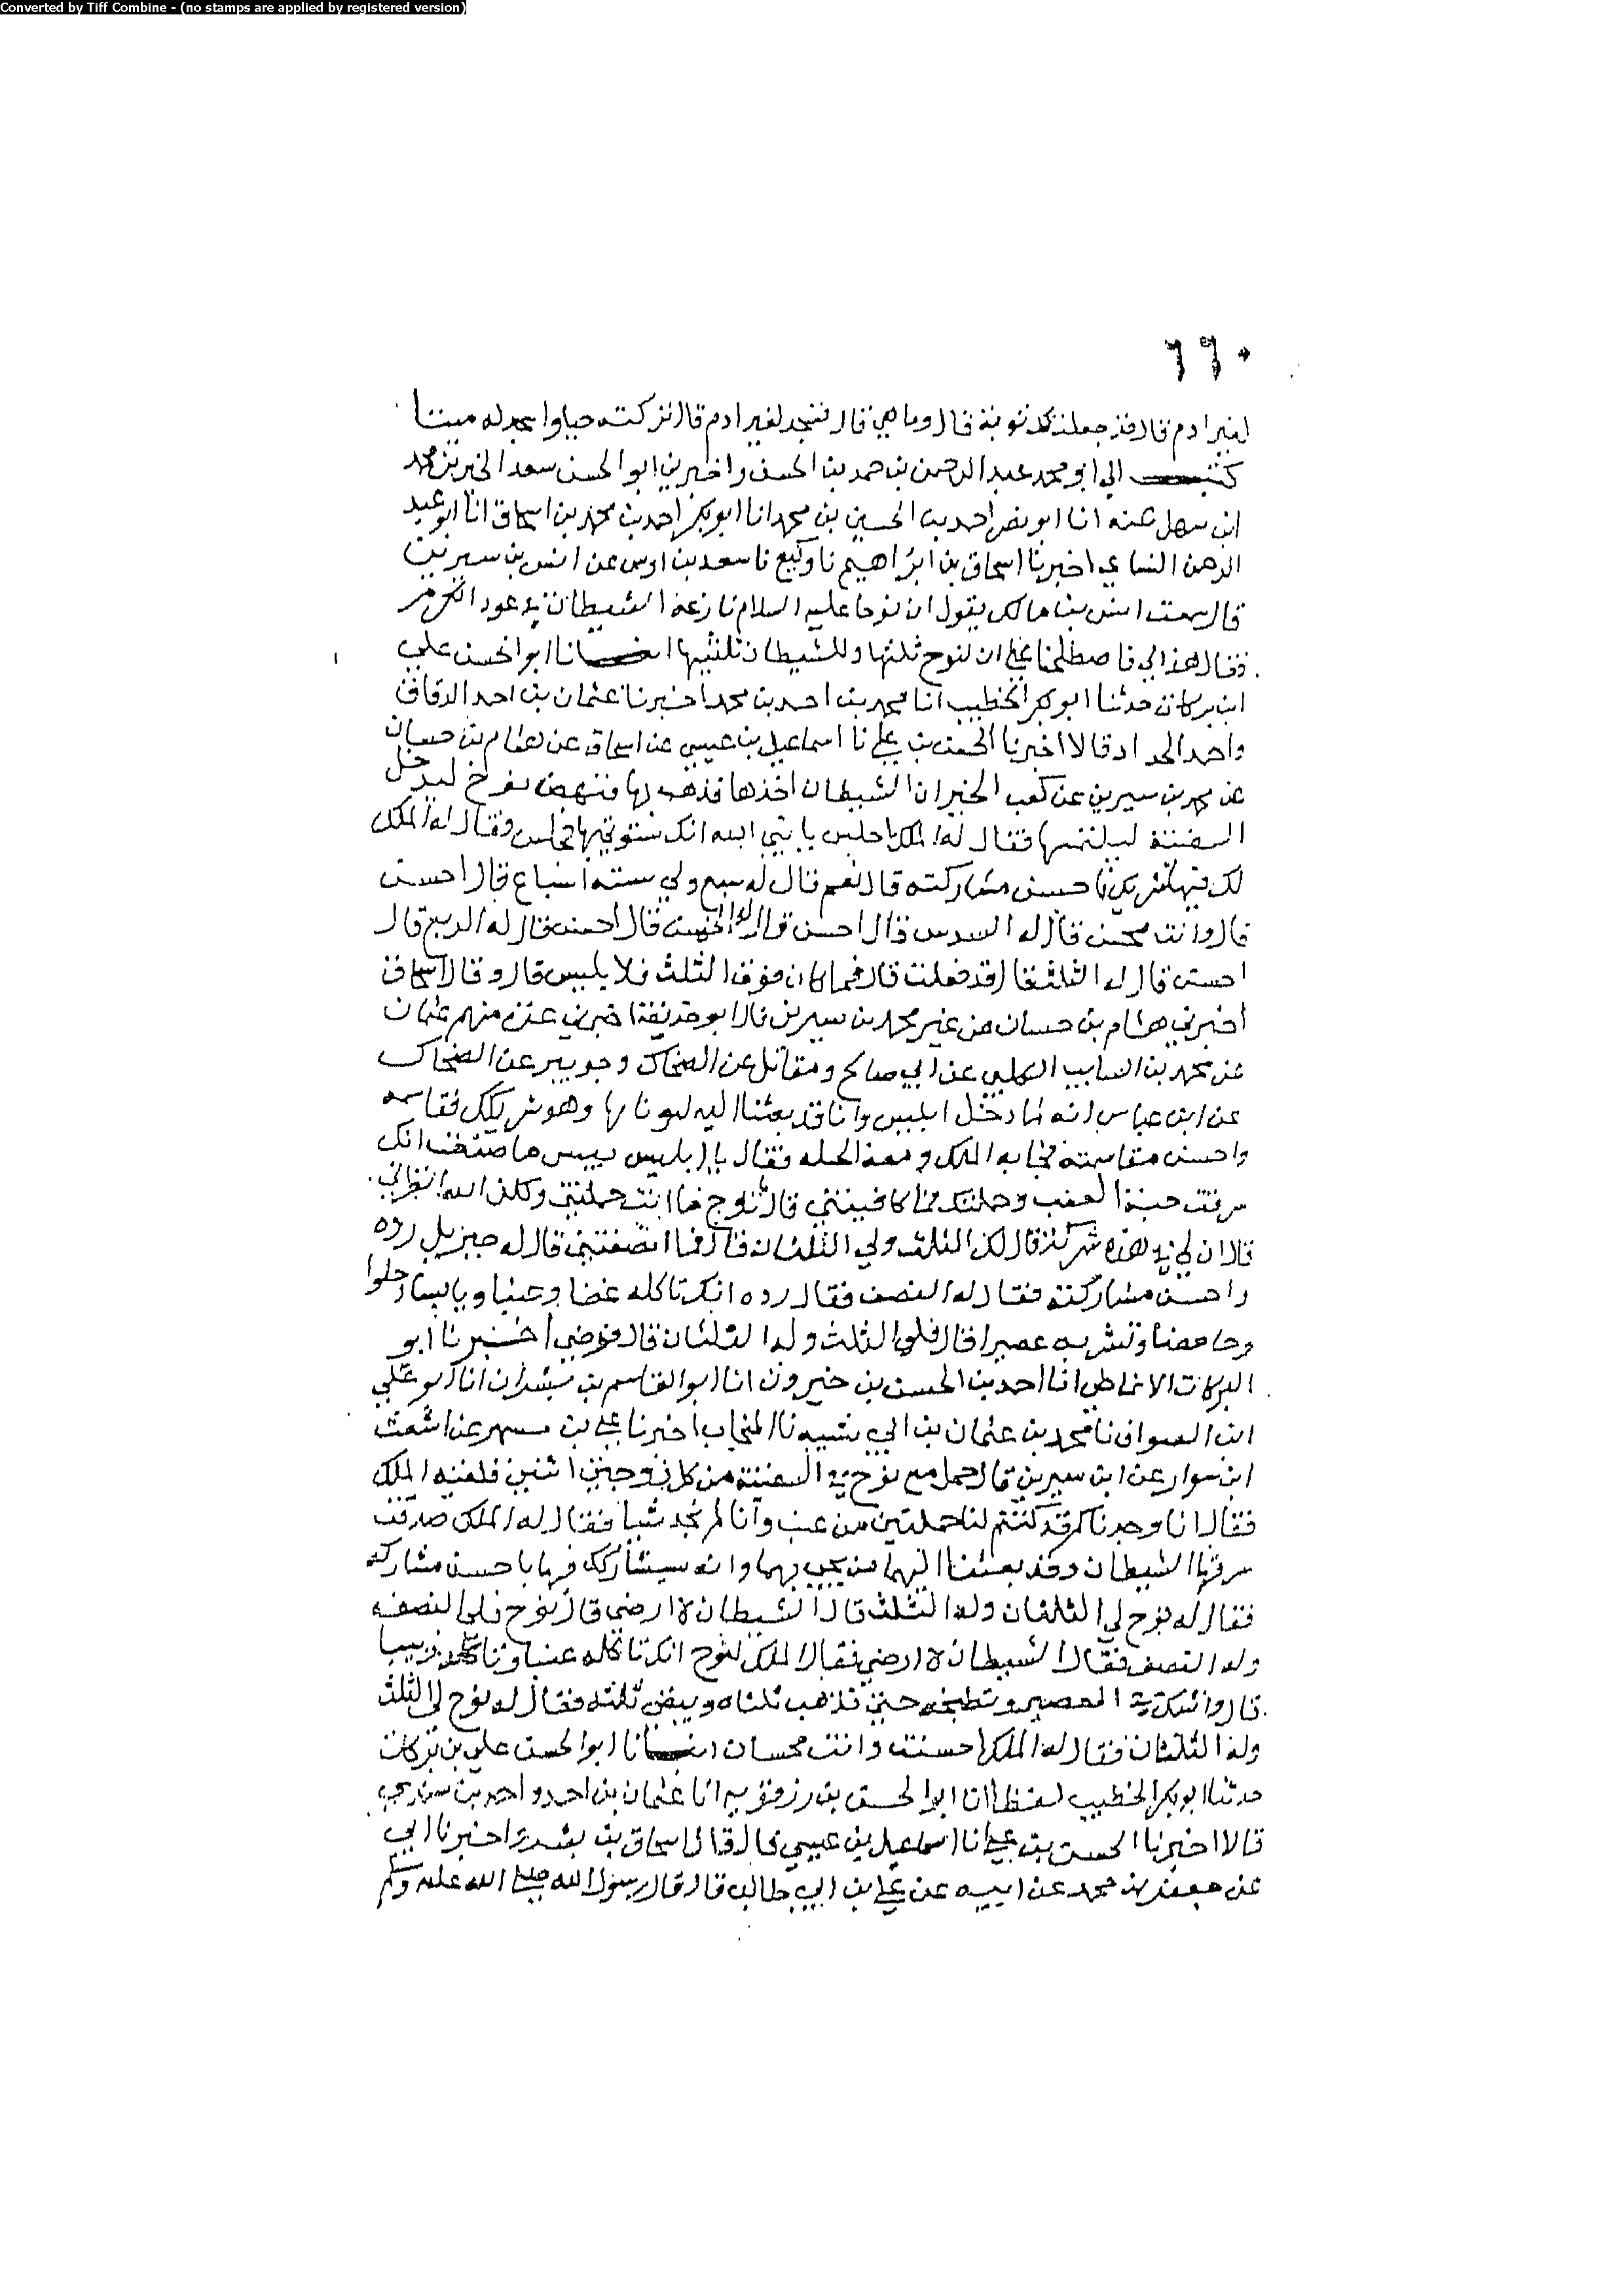 Converted by Tiff Combine - (no stamps are applied by registered version)
٦٦٠
لغير ادم قال قد جعلت لك توبة قال وما هي قال تسجد لقبر ادم قال تركته حيا واسجد له ميتا
كتب الي ابو محمد عبد الرحمن بن حمد بن الحسن واخبرني ابو الحسن سعد الخير بن محمد
ابن سهل عنه انا ابو نصر احمد بن الحسين بن محمد انا ابو بكر احمد بن محمد بن اسحاق انا ابو عبد
الرحمن النساي اخبرنا اسحاق بن ابراهيم نا وكيع نا سعد بن اوس عن انس بن سيرين
قال سمعت انس بن مالك يقول ان نوحا عليه السلام نازعه الشيطان في عود الكرم
فقال هذا لي فاصطلحا على ان لنوح ثلثها وللشيطان ثلثيها اخبرنا ابو الحسن علي
ابن بركات حدثنا ابو بكر الخطيب انا محمد بن احمد بن محمد اخبرنا عثمان بن احمد الدقاق
واحمد الحداد قالا اخبرنا الحسن بن علي نا اسماعيل بن عيسى عن اسحاق عن هشام بن حسان
عن محمد بن سيرين عن كعب الخبر ان الشيطان اخذها فذهب بها فنهض نوح ليدخل
السفينة ليلتمسها فقال له الملك اجلس يا نبي الله انك ستوتى بها فجلس وقال له الملك
لك فيها شريك فاحسن مشاركته قال نعم قال له سبع ولي ستة اسباع قال احسن
قال وانت محسن قال له السدس قال احسن قال له الخمس قال احسن قال له الربع قال
احسن قال له الثلث قال قد فعلت قال فما كان فوق الثلث فلابليس قال وقال اسحاق
اخبرني هشام بن حسان عن غير محمد بن سيرين قال ابو حذيفة اخبرني عدة منهم عثمان
عن محمد بن السايب الكلبي عن ابي صالح ومقاتل عن الضحاك وجويبر عن الضحاك
عن ابن عباس انه لما دخل ابليس وانا قد بعثنا اليه ليوتا بها وهو شريكك فقاسمه
واحسن مقاسمته فجا به الملك ومعه الحبله فقال يا ابليس بيس ما صنعت انك
سرقت حبة العنب وحملتك فما كافيتني قال لنوح ما انت حملتني ولكن الله انظرني
قال ان لي في هذه شركة قال لك الثلث ولي الثلثان قال فما انصفتني قال له جبريل زده
واحسن مشاركته فقال له النصف فقال زده انك تاكله غضا وعنبا ويابسا وحلوا
وحامضا وتشربه عصيرا قال فلي الثلث وله الثلثان قال فرضي اخبرنا ابو
البركات الانماطي انا احمد بن الحسن بن خيرون انا ابو القاسم بن بشران انا ابو علي
ابن الصواف نا محمد بن عثمان بن ابي شيبه نا المنجاب اخبرنا علي بن مسهر عن اشعث
ابن سوار عن ابن سيرين قال حمل مع نوح في السفينة من كل زوجين اثنين فلقيه الملك
فقال انا وجدناكم قد كنتم لنا حملتين من عنب وانا لم نجد شيا فقال له الملك صدقت
سرقها الشيطان وقد بعثنا اليهما من يجي بهما وانه سيشاركك فيها باحسن مشاركه
فقال له نوح لي الثلثان وله الثلث قال الشيطان لا ارضى قال نوح فلي النصف
وله النصف فقال الشيطان لا ارضى فقال الملك لنوح انك تاكله عنبا وتاكله زبيبا
قال وانك العصير وتطبخه حتى تذهب ثلثاه ويبقى ثلثه فقال له نوح لي الثلث
وله الثلثان فقال له الملك احسنت وانت محسان اخبرنا ابو الحسن علي بن بركات
حدثنا ابو بكر الخطيب لفظا انا ابو الحسن بن رزقويه انا عثمان بن احمد واحمد بن سندي
قالا اخبرنا الحسن بن علي نا اسماعيل بن عيسى قال قال اسحاق بن بشر واخبرنا ابي
عن جعفر بن محمد عن ابيه عن علي بن ابي طالب قال قال رسول الله صلى الله عليه وسلم